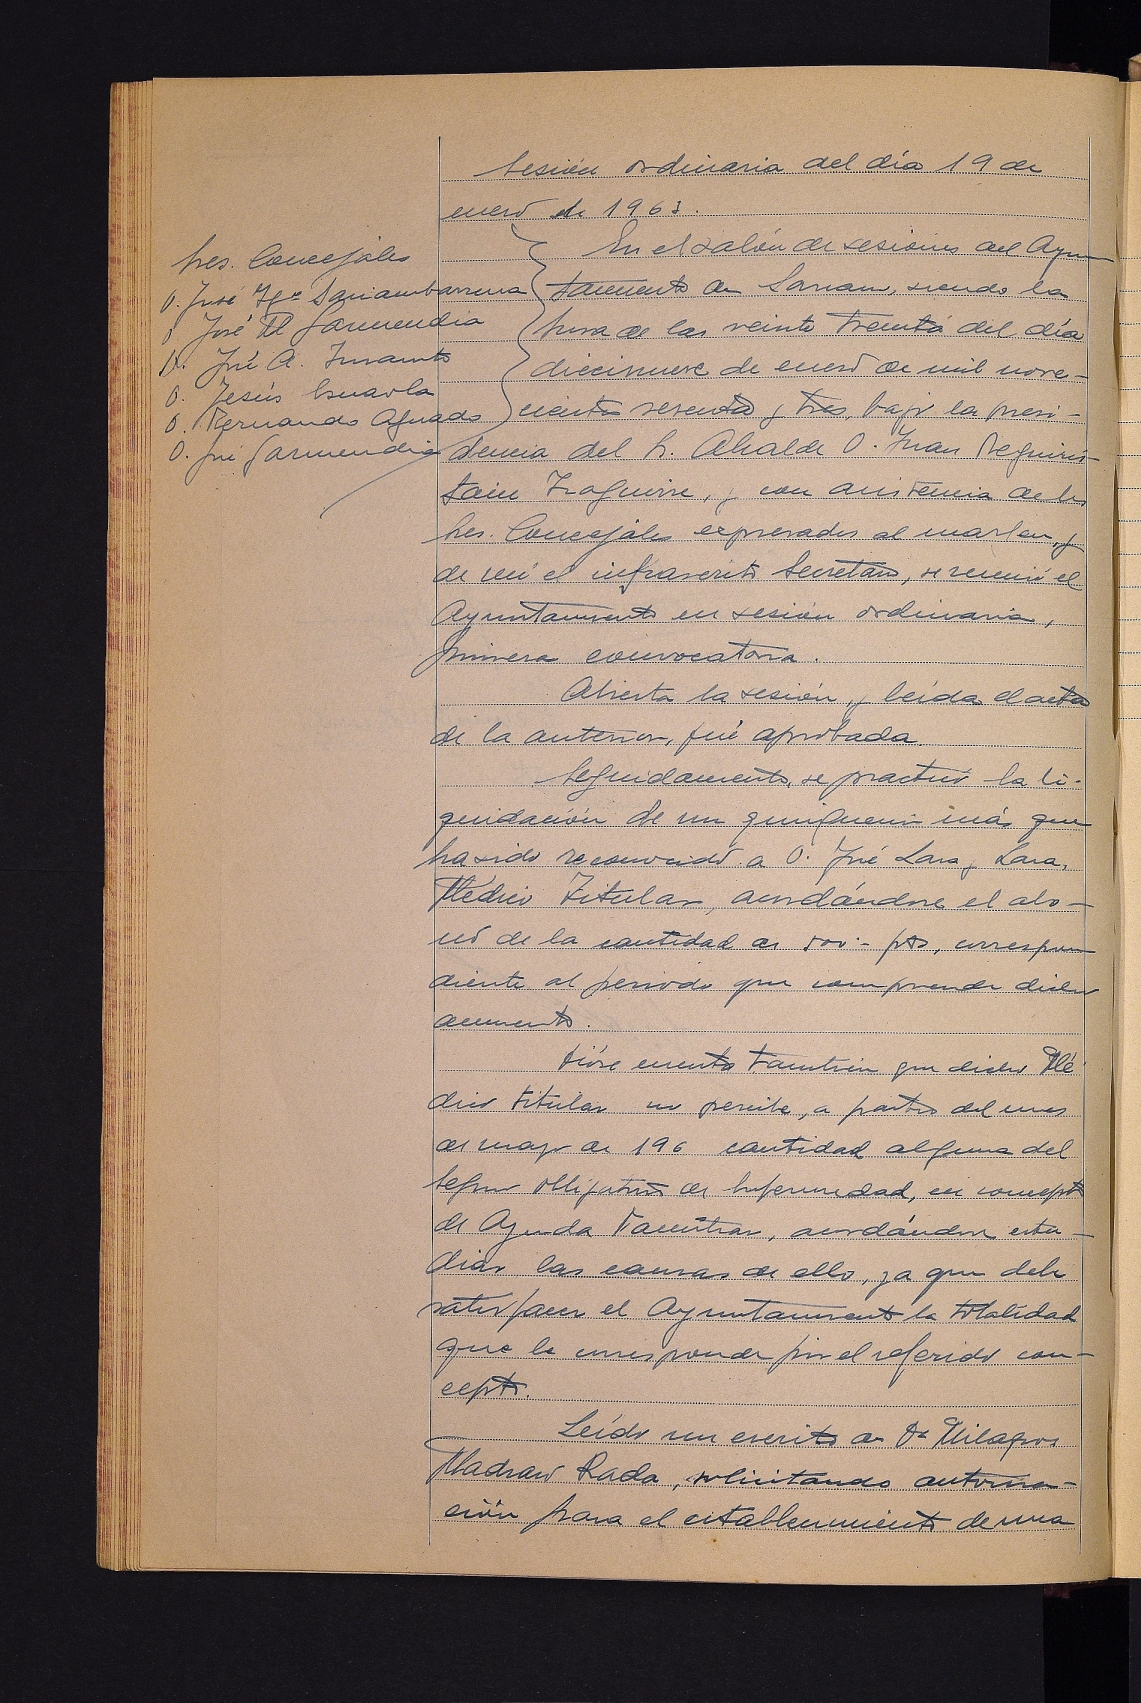 Sesión ordinaria del día 19 de
enero de 1963.
Sres. Concejales
D. José Igº Sariambarrena
D. José Mª Garmendia
D. José A.
D. Jesús
D. Fernando Aguado
D. José Garmendia
En el salón de sesiones del Ayun
tamiento de, siendo la
hora de las veinte treinta del día
diecinueve de enero de mil nove-
cientos sesenta y tres, bajo la presi-
dencia del Sr. Alcalde D. Juan Reguiris-
tain Izaguirre, y con asistencia de los
Sres. Concejales expresados al margen, y
de mí el infrascrito Secretario, se reunió el
Ayuntamiento en sesión ordinaria,
primera convocatoria.
Abierta la sesión, y leída el acta
de la anterior, fué aprobada.
Seguidamente, se practicó la li-
quidación de un quinquenio más que
ha sido reconocido a D. José Lara y Lara,
Médico Titular, acordándose el abo-
no de la cantidad de 500.- pts, correspon
diente al periodo que comprende dicho
aumento.
Dióse cuenta también que dicho Mé
dico Titular no percibe, a partir del mes
de mayo de 196 cantidad alguna del
Seguro Obligatorio de Enfermedad, en concepto
de Ayuda Familiar, acordándose estu-
diar las causas de ello, ya que debe
satisfacer el Ayuntamiento la totalidad
que le corresponde por el referido con-
cepto.
Leído un escrito de Dª Milagros
Madraw Rada, solicitando autoriza-
ción para el establecimiento de una